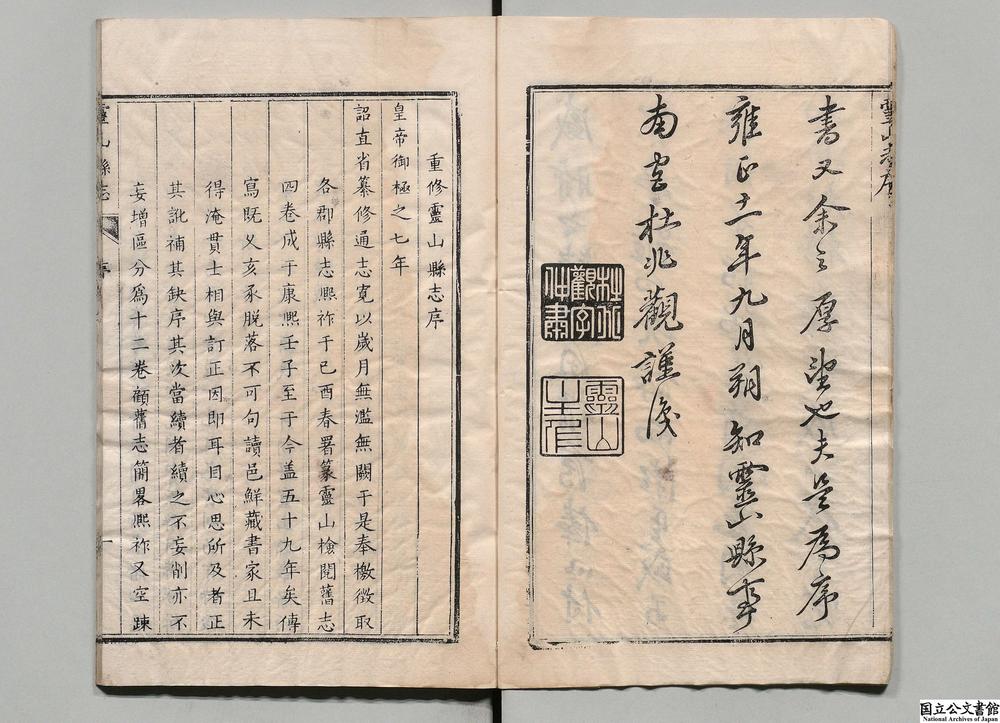 書又余之厚望也夫是為序
雍正十一年九月朔知靈山縣事
南宮杜兆觀謹後
靈山
重修靈山縣志序
皇帝御極之七年
詔直省纂修通志寬以歲月無濫無闕于是奉檄徵取
各郡縣志熈祚于已酉春署篆靈山檢閱舊志
四卷成于康熈壬子至于今盖五十九年矣傳
寫既乆亥豕脱落不可句讀邑鮮藏書家且未
得淹貫士相與訂正因即耳目心思所及者正
其訛補其缺序其次當續者續之不妄削亦不
妄增區分為十二卷顧舊志簡畧熈祚又空踈
靈山縣志
序
一
国立公文書館
National Archives of Japan